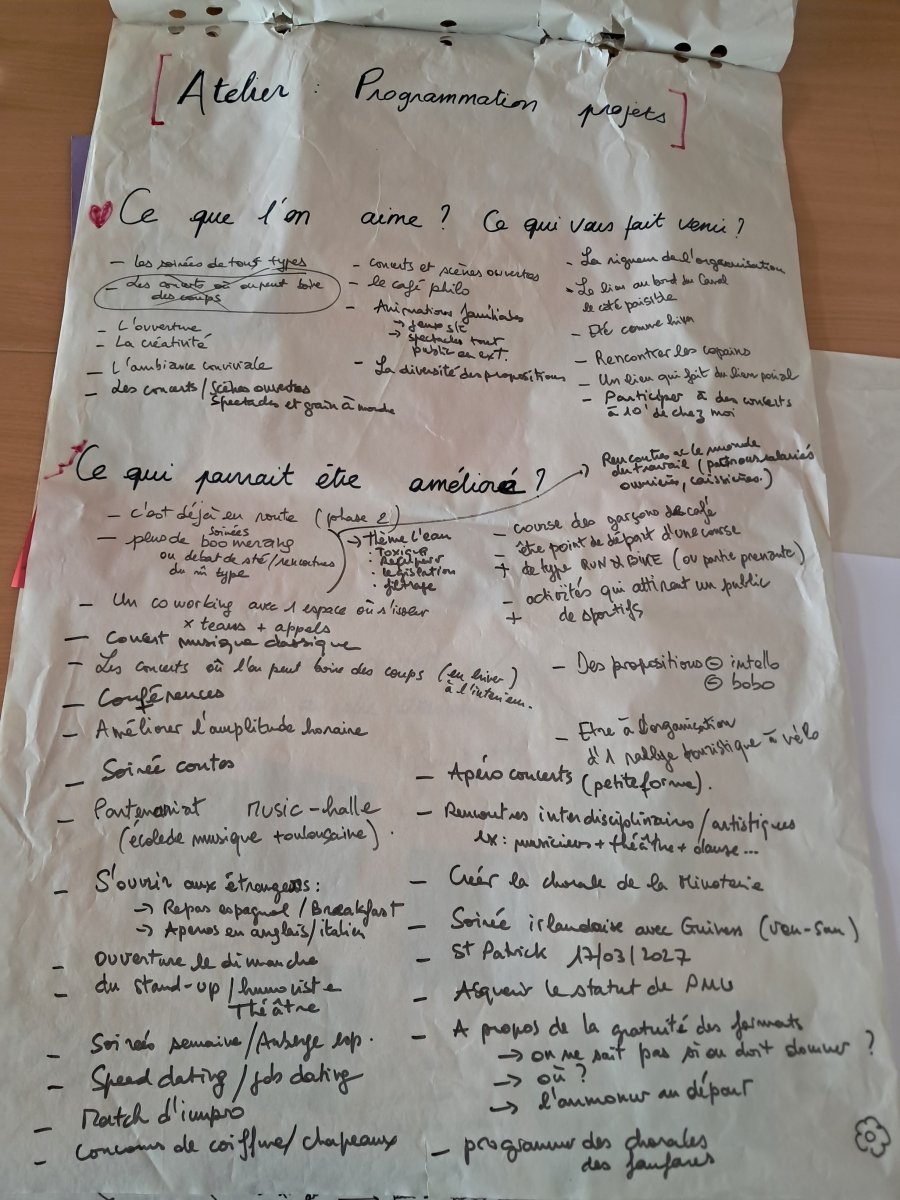 [Atelier : Programmation projets]
Ce que l'on aime ? Ce qui vous fait venir ?
- les soirées de tous types
- Les concerts où on peut boire
des coups
- L'ouverture
- La créativité
- L'ambiance conviviale
- Les concerts / Scènes ouvertes
Spectacles et grain à moudre
- concerts et scènes ouvertes
- le café philo
- Animations familiales
→ jeux s/c
→ spectacles tout
public en ext.
- La diversité des propositions
- La rigueur de l'organisation
- Le lieu au bord du Canal
le côté paisible
- Eté comme hiver
- Rencontrer les copains
- Un lieu qui fait du lien social
- Participer à des concerts
à 10' de chez moi
Ce qui pourrait être amélioré ?
→ Rencontres avec le monde
du travail (patrons, salariés
ouvriers, caissières.)
- c'est déjà en route (phase 2)
- plus de soirées boomerang
ou débat de sté / rencontres
du m̂ type
→ Thème l'eau
· toxique
· Récupérer
· législation
· filtrage
- Un coworking avec 1 espace où s'isoler
x teams + appels
- Concert musique classique
- Les concerts où l'on peut boire des coups (en hiver)
à l'intérieur.
- Conférences
+
- Améliorer l'amplitude horaire
- Soirée contes
- Partenariat Music-halle
(école de musique toulousaine).
- S'ouvrir aux étrangers :
→ Repas espagnol / Breakfast
→ Aperos en anglais / italien
- Ouverture le dimanche
- du stand-up / humoriste
Théâtre
- Soirées semaine / Auberge esp.
- Speed dating / job dating
- Match d'impro
- Concours de coiffure / chapeaux
- course des garçons de café
- être point de départ d'une course
+ de type RUN & BIKE (ou partie prenante)
- activités qui attirent un public
+ de sportifs
- Des propositions ⊖ intello
⊖ bobo
- Etre à l'organisation
d'1 rallye touristique à vélo
- Apéro concerts (petite forme).
- Rencontres interdisciplinaires / artistiques
ex : musiciens + théâtre + danse...
- Créer la chorale de la Minoterie
- Soirée irlandaise avec Guiness (ven-sam)
- St Patrick 17/03/2027
- Acquérir le statut de PMU
- A propos de la gratuité des formats
→ on ne sait pas si on doit donner ?
→ où ?
→ l'annoncer au départ
- programmer des chorales
des fanfares